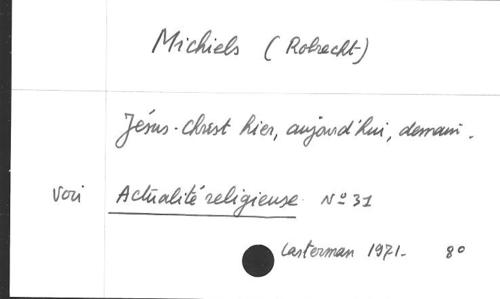 Michiels (Robrecht)
Jésus-Christ hier, aujourd'hui, demain.
Voir Actualité religieuse No 31
Casterman 1971. 8°